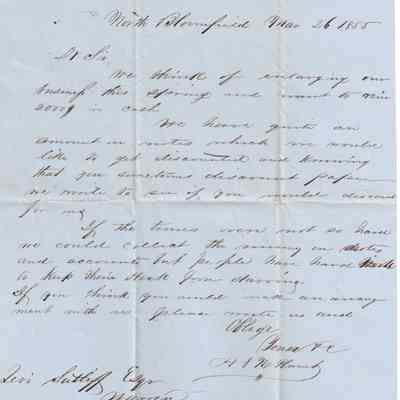 North Bloomfield Mar 26 1855
Dr Sir
We think of enlarging our
business this spring and want to rais
2000$ in cash
We have quite an
amount in notes which we would
like to get discounted and knowing
that you sometimes discount paper
we wrote to see if you would discount
for us
If the times were not so hard
we could collect the money on notes
and accounts but people have hard work
to keep their stock from starving.
If you think you could make an arrang
ment with us please write us and
Oblige
Yours &c
Levi Sutliff Esqr
Warren